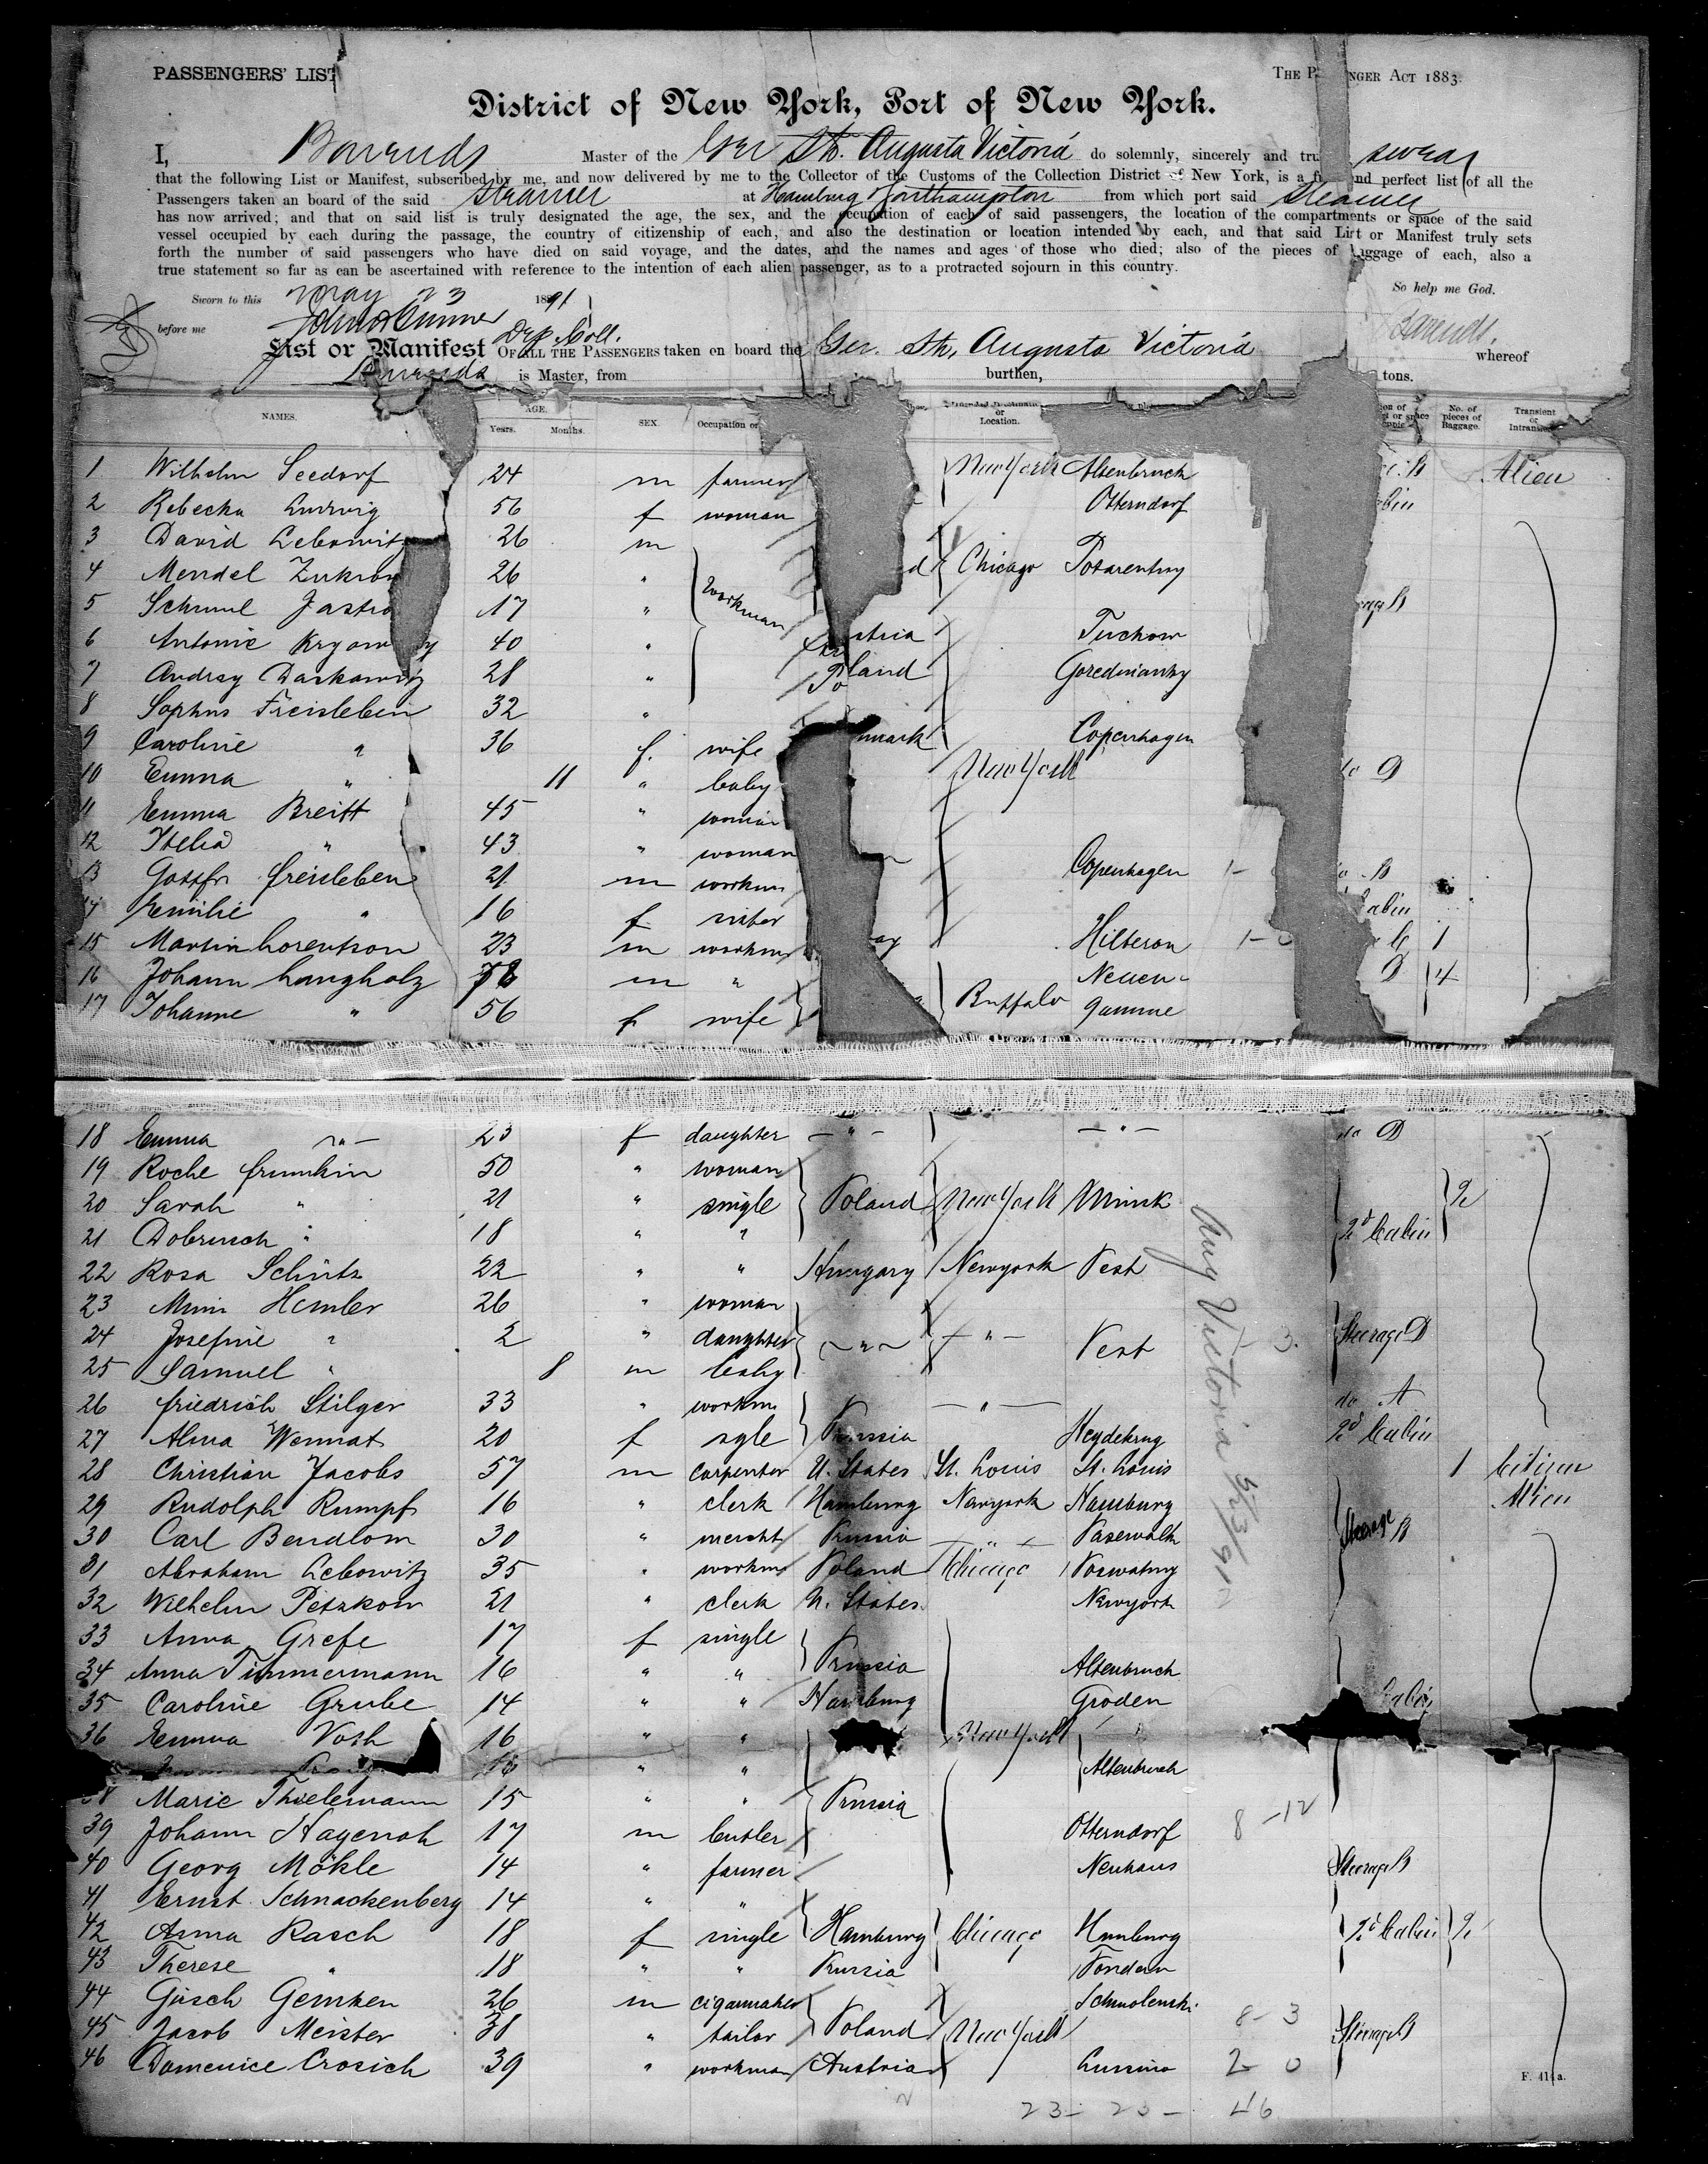 PASSENGERS' LIST
THE P NGER ACT 1883.
District of New York, Port of New York.
I, Barends Master of the Ger Sts. Augusta Victoria do solemnly, sincerely and tru swear
that the following List or Manifest, subscribed by me, and now delivered by me to the Collector of the Customs of the Collection District of New York, is a f nd perfect list of all the
Passengers taken an board of the said steamer at Hamburg from which port said Steamer
has now arrived; and that on said list is truly designated the age, the sex, and the occupation of each of said passengers, the location of the compartments or space of the said
vessel occupied by each during the passage, the country of citizenship of each, and also the destination or location intended by each, and that said List or Manifest truly sets
forth the number of said passengers who have died on said voyage, and the dates, and the names and ages of those who died; also of the pieces of luggage of each, also a
true statement so far as can be ascertained with reference to the intention of each alien passenger, as to a protracted sojourn in this country.
Sworn to this May 23 1891
So help me God.
before me
Dep. Coll.
Barends.
List or Manifest OF ALL THE PASSENGERS taken on board the Ger. Sts. Augusta Victoria whereof
Barends is Master, from burthen, tons.
NAMES. AGE. Years. Months. SEX. Occupation or Location. No. of pieces of Baggage. Transient or
1 Wilhelm Seedorf 24 m farmer New York Altenbruch Alien
2 Rebecka Ludwig 56 f woman Otterndorf
3 David Lebowitz 26 m
4 Mendel 26 " workman Chicago
5 Schmul 17 "
6 Antonie 40 " Tuchow
7 Andrzy 28 " Poland
8 Sophus Freisleben 32 "
9 Caroline " 36 f. wife mark Copenhagen
10 Emma " 11 " baby New York do D
11 Emma Breitt 45 " woman
12 " 43 " woman
13 Freisleben 21 m workm Copenhagen 1-
14 Emilie " 16 f sister
15 Martin Lorentson 23 m workm 1-0 1
16 Johann Langholz m " Buffalo Neuen- D 4
17 Johanne " 56 f wife gamme
18 Emma -"- 23 f daughter -"- -"- do D
19 Roche Frumkin 50 " woman
20 Sarah " 21 " single Poland New York Minsk 2
21 Dobrusch " 18 " " 2d Cabin
22 Rosa Schutz 22 " " Hungary Newyork Pest
23 Mimi Hemler 26 " woman
24 Josefine " 2 " daughter -"- -"- Pest Steerage D
25 Samuel " 8 m baby
26 Friedrich Stilger 33 " workm -"- do A
27 Alma Wennat 20 f sgle Prussia Heydekrug 2d Cabin
28 Christian Jacobs 57 m carpenter U. States St. Louis St. Louis 1 Citizen
29 Rudolph Rumpf 16 " clerk Hamburg Newyork Hamburg Alien
30 Carl Bendlow 30 " mercht Prussia -"- Pasewalk Steerage B
31 Abraham Lebowitz 35 " workm Poland Chicago
32 Wilhelm Petzkow 21 " clerk U. States Newyork
33 Anna Grefe 17 f single
34 Anna Timmermann 16 " " Prussia Altenbruch
35 Caroline Grube 14 " " Hamburg Groden
36 Emma Vosh 16 " " New York
16 " " Altenbruch
38 Marie Thielemann 15 " " Prussia
39 Johann Hagenah 17 m butler Otterndorf 8-12
40 Georg Mökle 14 " farmer Neuhaus Steerage B
41 Ernst Schnackenberg 14 " "
42 Anna Rasch 18 f single Hamburg Chicago Hamburg 2d Cabin 2
43 Therese " 18 " " Prussia Tondern
44 Gusch Gemken 26 m cigarmaker Schmolenski 8-3
45 Jacob Meister 38 " tailor Poland New York Steerage B
46 Domenice Crosich 39 " workman Austria Lussino 2-0
Aug Victoria 5/23/91
F. 414a.
23- 23- 46